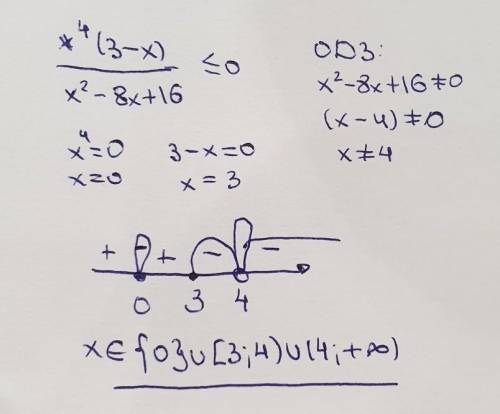 x⁴(3-x)
x²-8x+16
≤0
ОДЗ:
x²-8x+16≠0
(x-4)≠0
x≠4
x⁴=0 3-x=0
x=0 x=3
+ - + - -
0 3 4
x∈{0}∪[3;4)∪(4;+∞)